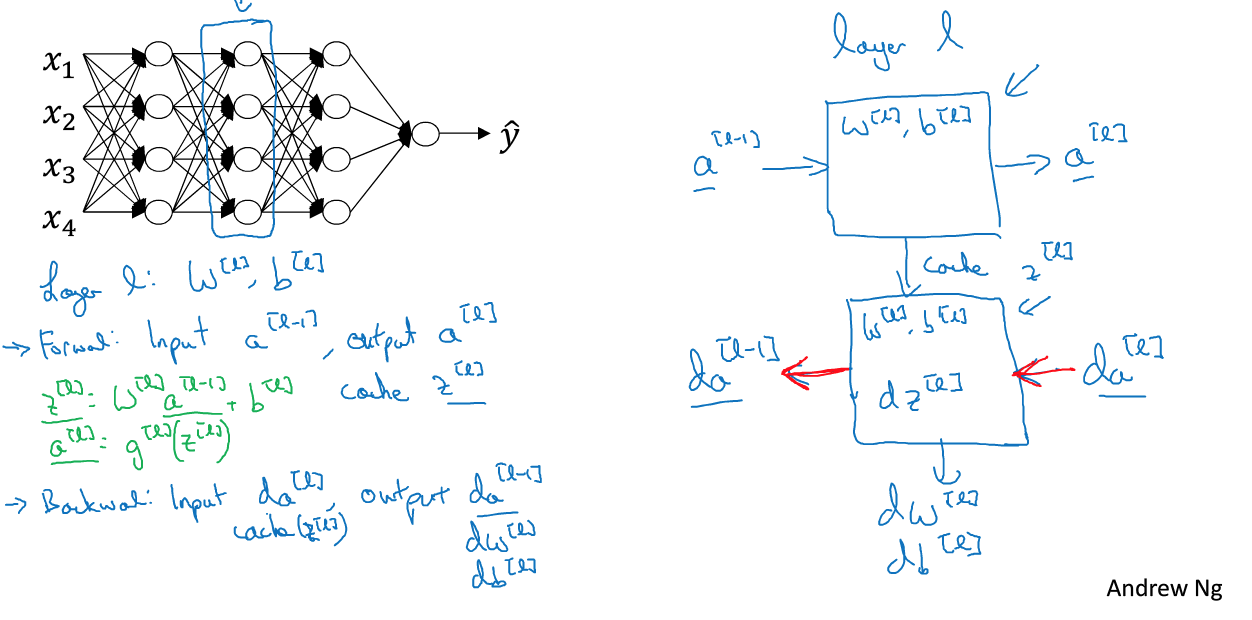 x₁
x₂
x₃
x₄
ŷ
Layer l: W^[l], b^[l]
→ Forward: Input a^[l-1], output a^[l]
z^[l] = W^[l] a^[l-1] + b^[l]
cache z^[l]
a^[l] = g^[l](z^[l])
→ Backward: Input da^[l], output da^[l-1]
cache(z^[l])
dw^[l]
db^[l]
layer l
w^[l], b^[l]
a^[l-1]
a^[l]
cache z^[l]
w^[l], b^[l]
da^[l-1]
dz^[l]
da^[l]
dw^[l]
db^[l]
Andrew Ng